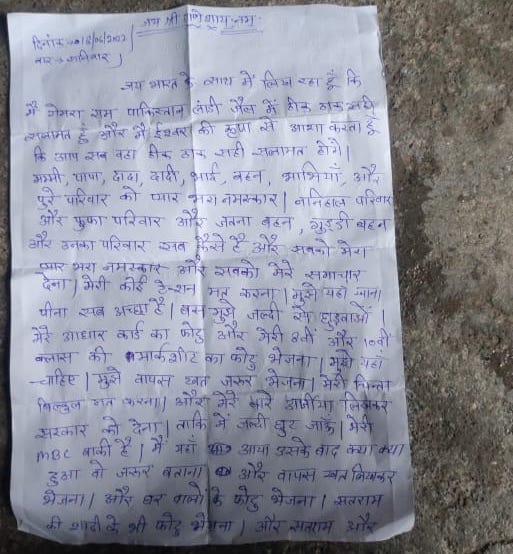 जय श्री गणेशाय नमः
दिनांक → 18/06/2022
वार → शनिवार
जय भारत के साथ में लिख रहा हूँ कि
मैं गेमरा राम पाकिस्तान लांडी जेल में ठीक ठाक सही
सलामत हूँ और मैं ईश्वर की कृपा से आशा करता हूँ
कि आप सब वहा ठीक ठाक सही सलामत होंगे।
मम्मी, पापा, दादा, दादी, भाई, बहन, भाभियाँ, और
पुरे परिवार को प्यार भरा नमस्कार। ननिहाल परिवार
और फुफा परिवार और जतना बहन, गुड्डी बहन
और उनका परिवार सब कैसे है और सबको मेरा
प्यार भरा नमस्कार और सबको मेरे समाचार
देना। मेरी कोई टेन्शन मत करना। मुझे यहाँ खाना
पीना सब अच्छा है। बस मुझे जल्दी से छुड़वाओ।
मेरे आधार कार्ड का फोटु और मेरी 8वीं और 10वीं
क्लास की मार्कशीट का फोटु भेजना। मुझे यहाँ
चाहिए। मुझे वापस खत जरूर भेजना। मेरी चिन्ता
बिल्कुल मत करना। और मेरे बारे लिखकर
सरकार को देना। ताकि मैं जल्दी छुट जाऊँ। मेरी
MBC बाकी है। मैं यहाँ आया उसके बाद क्या क्या
हुआ वो जरूर बताना और वापस खत लिखकर
भेजना। और घर वालो के फोटु भेजना। सलराम
की शादी के भी फोटु भेजना। और सलराम और